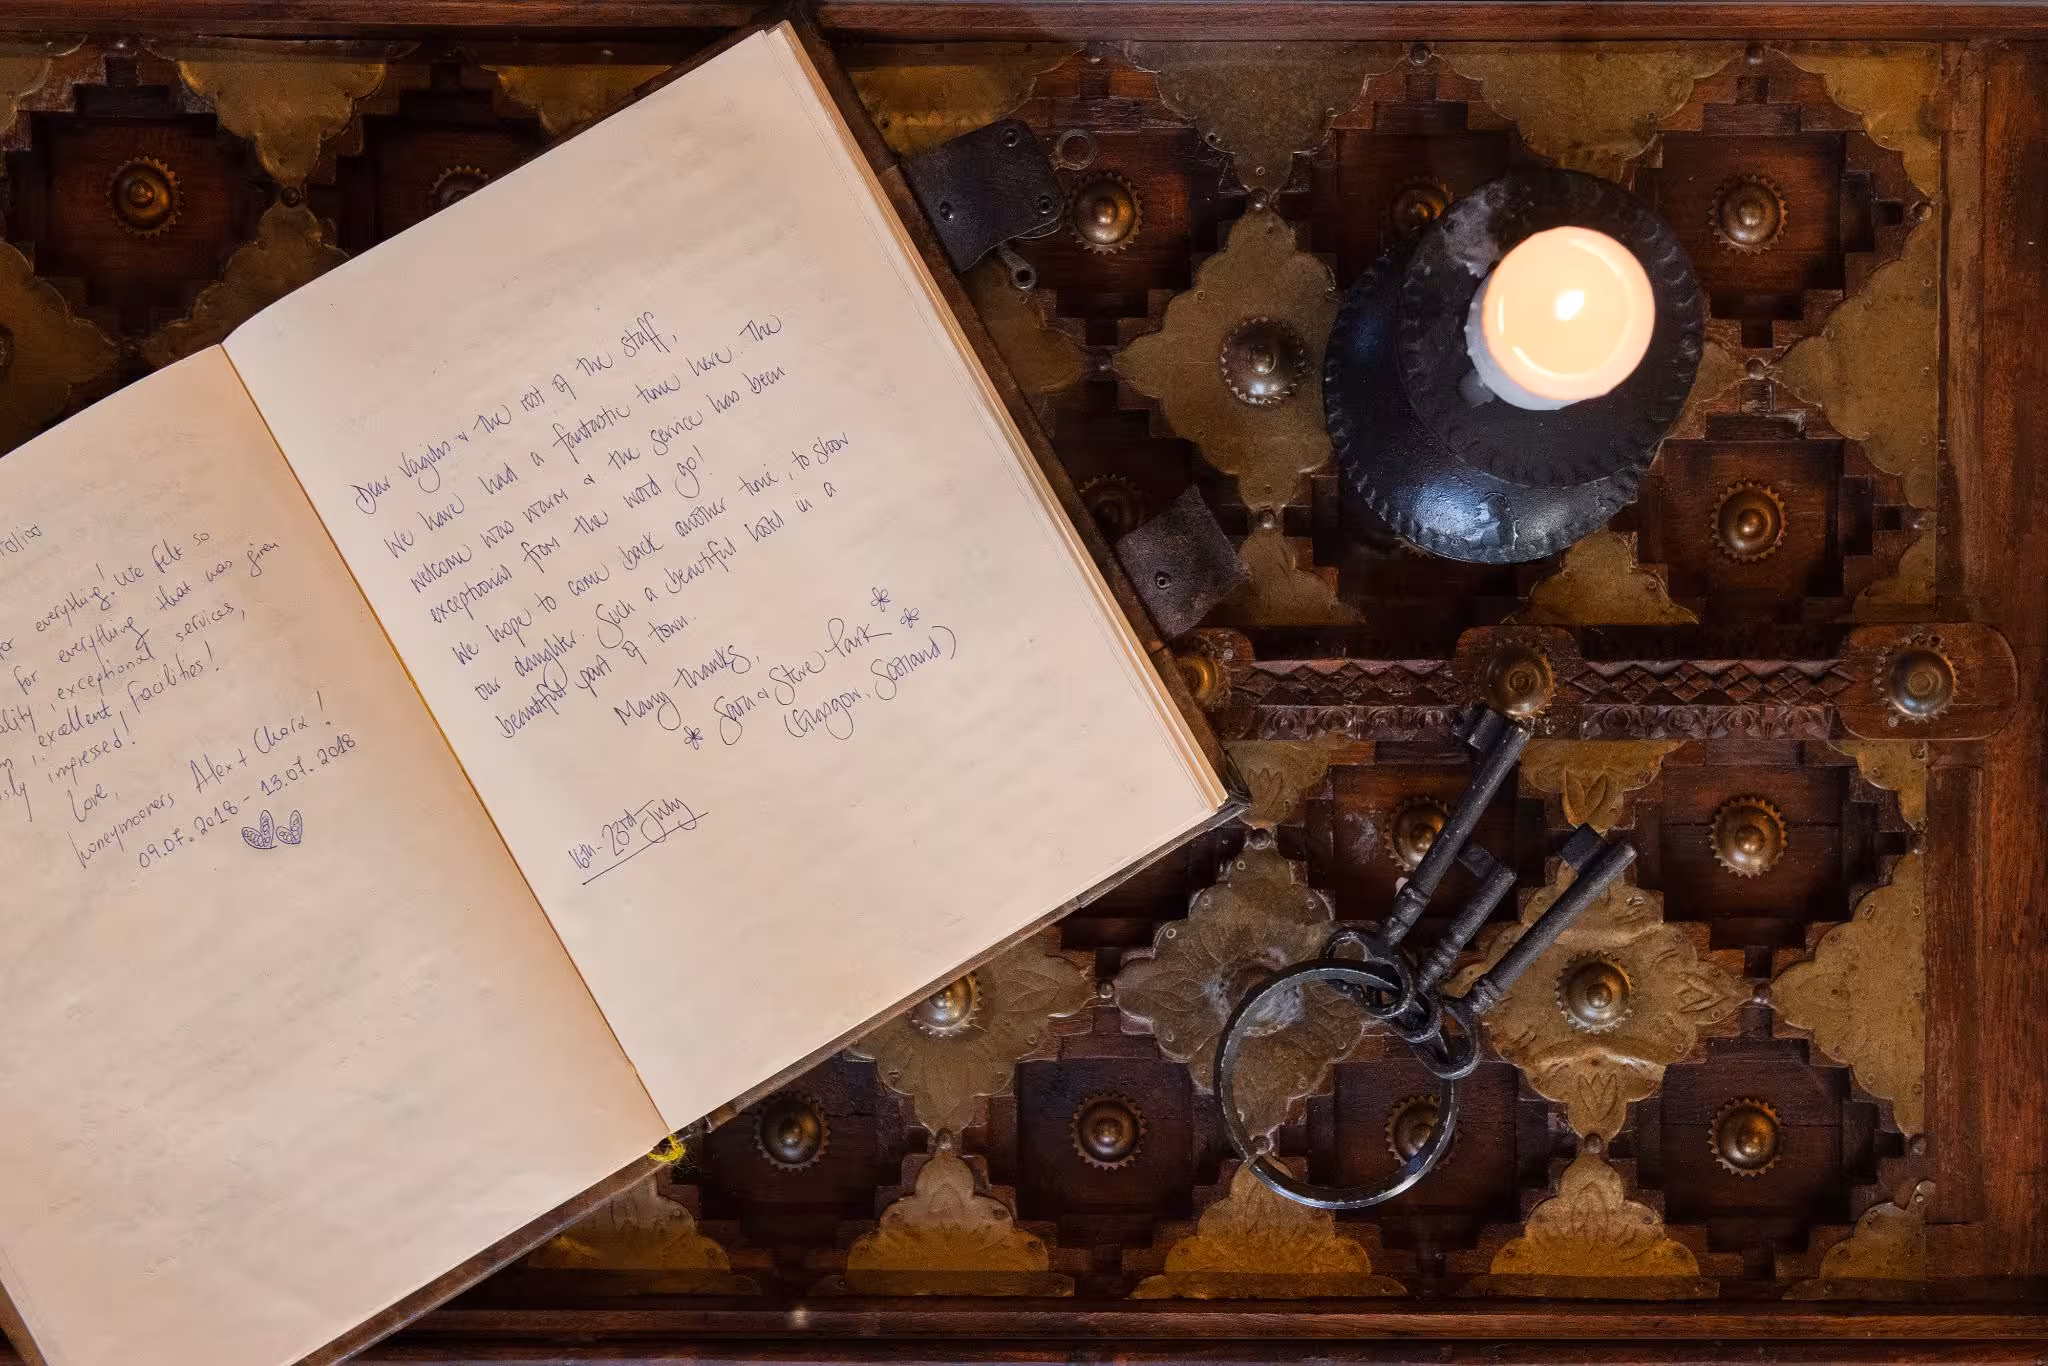 everything! We felt so
for everything that was given
exceptional services,
! excellent facilities!
impressed!
Love,
honeymooners Alex + Chara!
09.07.2018 - 13.07.2018
Dear & the rest of the staff,
We have had a fantastic time here. The
welcome was warm & the service has been
exceptional from the word go!
We hope to come back another time, to show
our daughter. Such a beautiful hotel in a
beautiful part of town.
Many thanks,
Sara & Steve Park
(Glasgow, Scotland)
16th - 23rd July